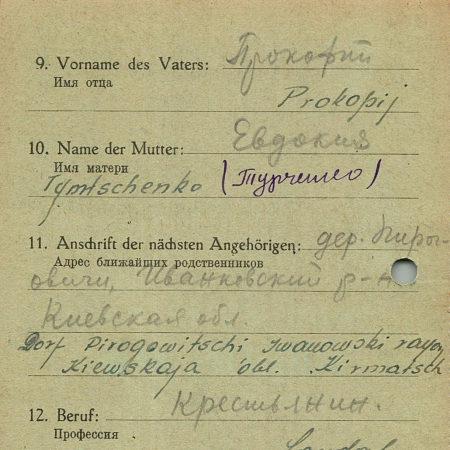 9. Vorname des Vaters: Прокофий
Имя отца
Prokopij
10. Name der Mutter: Евдокия
Имя матери
Tymtschenko (Турченко)
11. Anschrift der nächsten Angehörigen: дер.
Адрес ближайших родственников
овичи, Иванковский р-н
Киевская обл.
Dorf Pirogowitschi Iwanowski rayon
Kiewskaja obl.
12. Beruf: Крестьянин.
Профессия